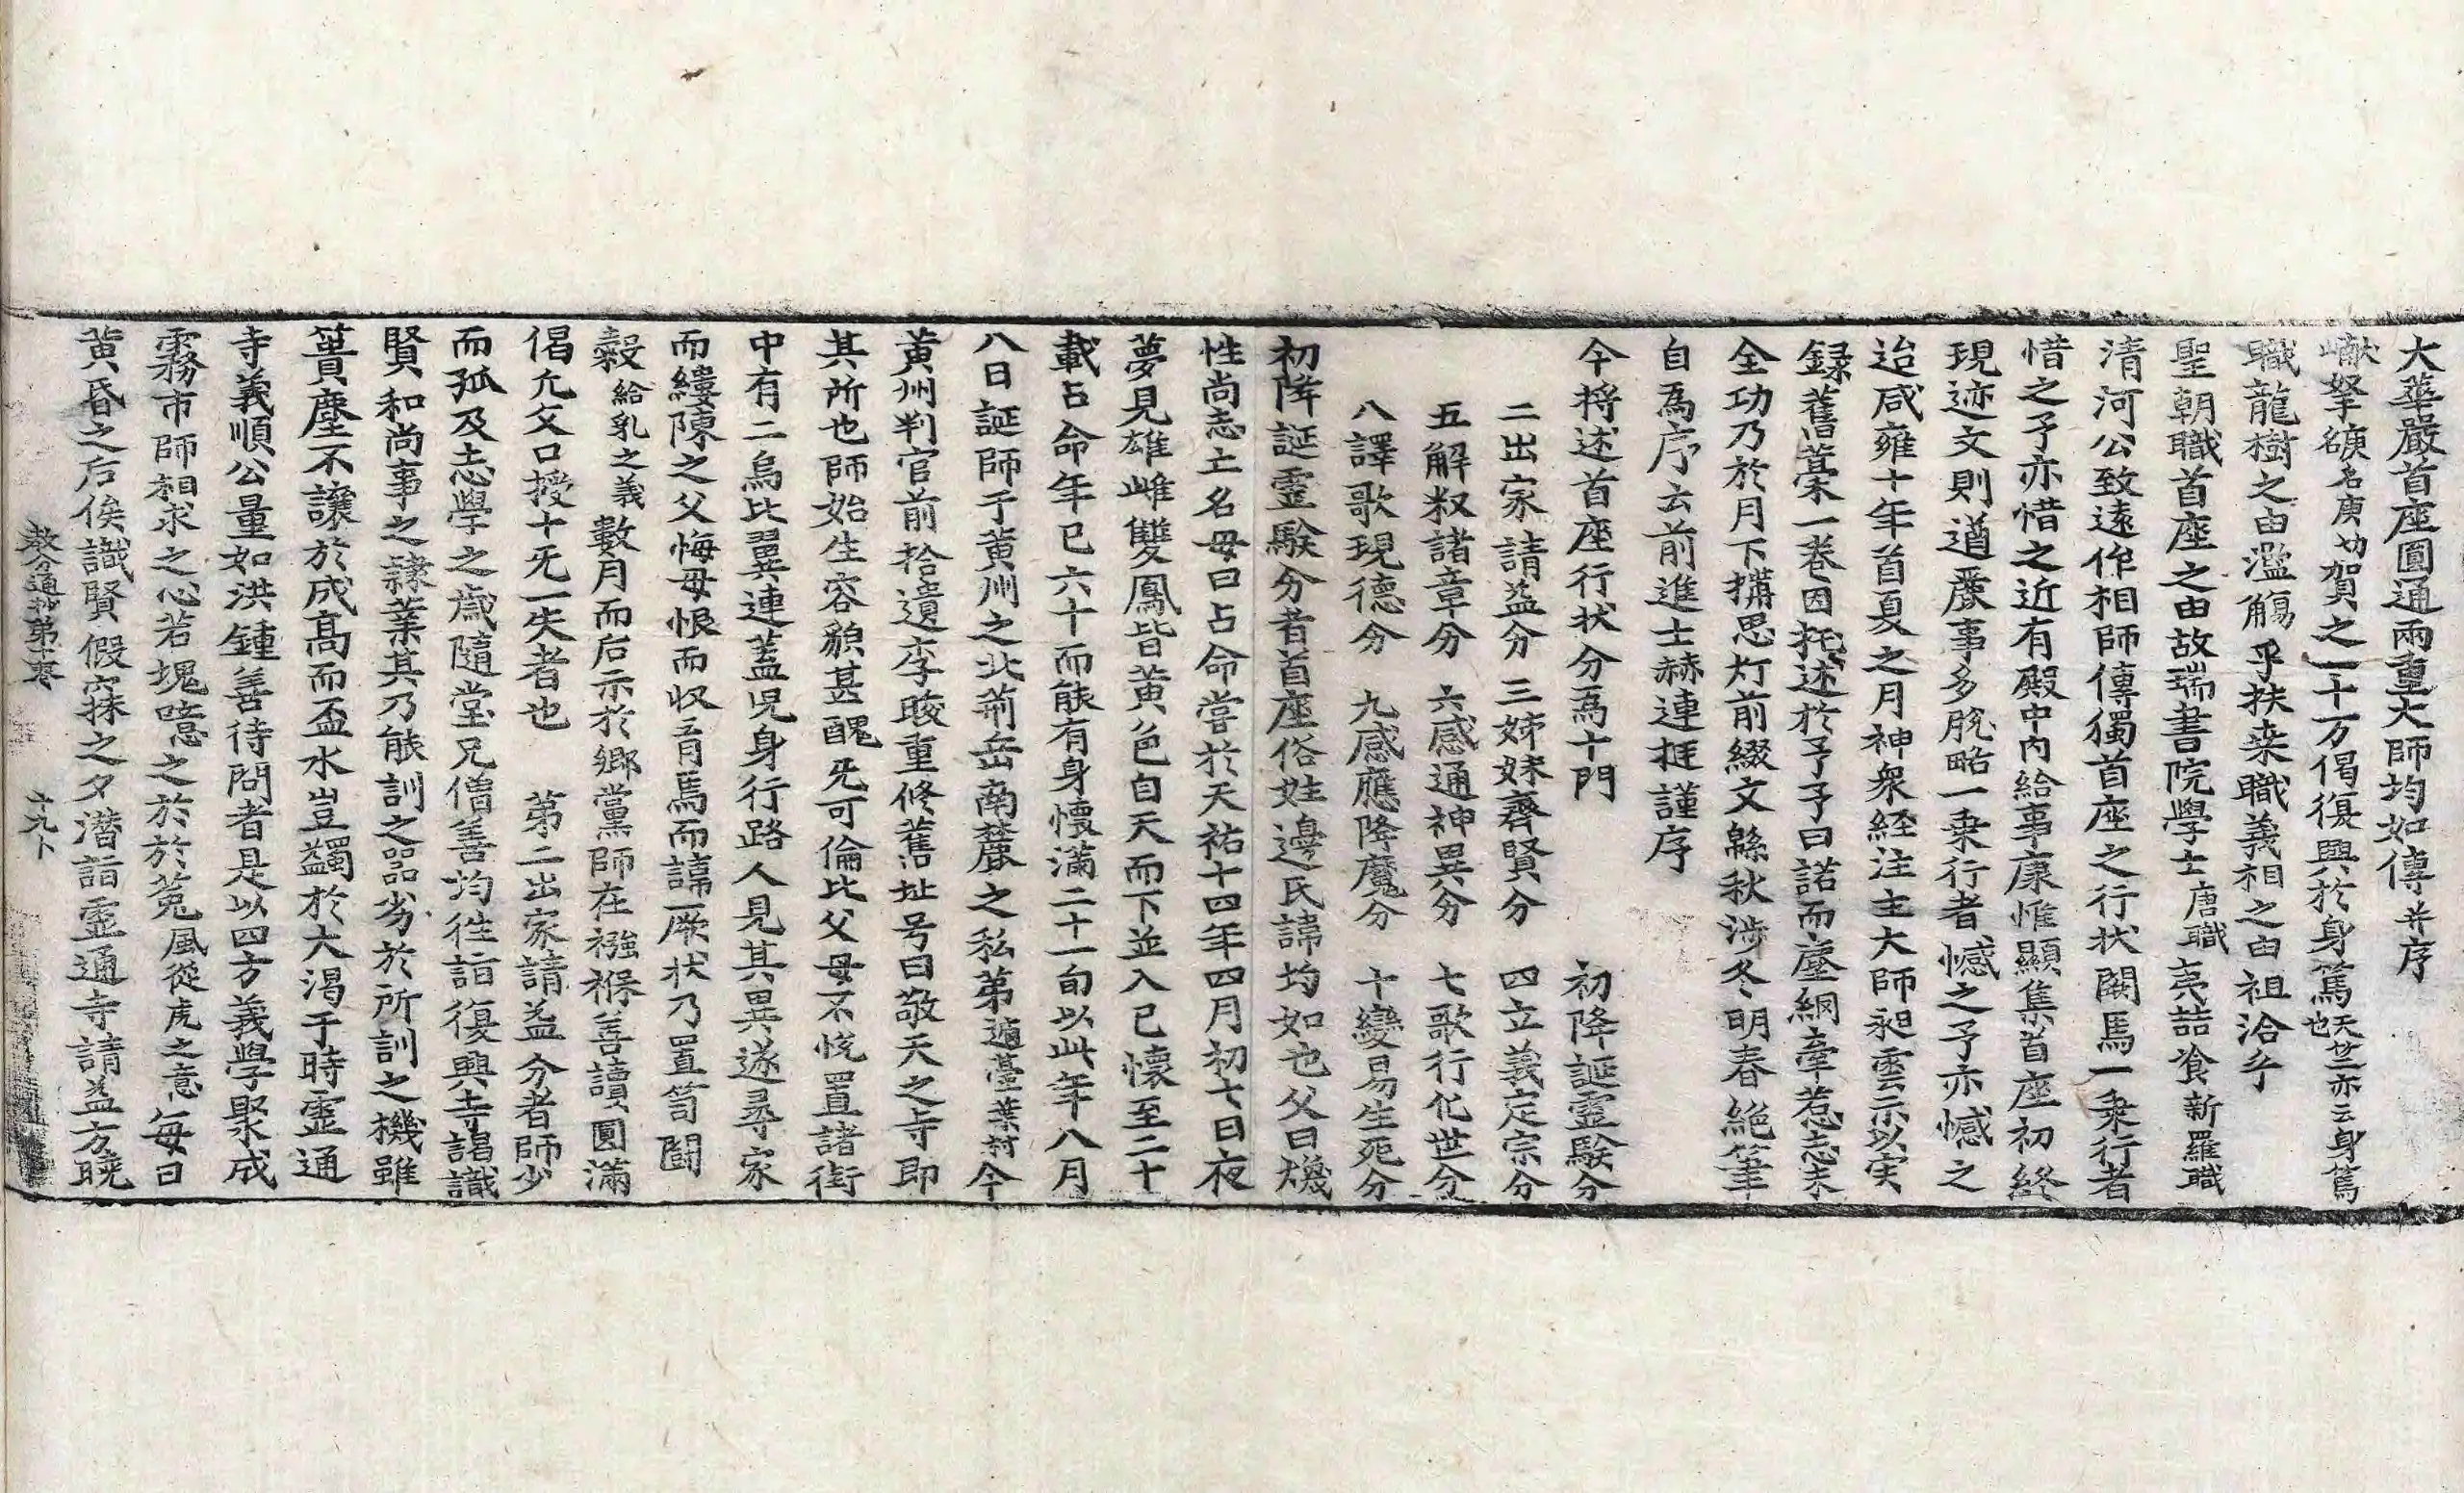 大華嚴首座圓通兩重大師均如傳并序
巘拏䃁名庚切賀之一十万偈復興於身篤天竺亦云身篤也
職龍樹之由濫觴乎扶桒職義相之由祖洽乎
聖朝職首座之由故瑞書院學士唐職夷喆飡新羅職
清河公致遠作相師傳獨首座之行状闕焉一乗行者
惜之予亦惜之近有殿中内給事康惟顯集首座初終
現迹文則遒麗事多脱略一乗行者憾之予亦憾之
迨咸雍十年首夏之月神衆経注主大師昶雲示以实
録舊藁一巻因托述於予予曰諾而塵網牽惹志未
全功乃於月下攜思灯前綴文緜秋涉冬明春絶筆
自為序云前進士赫連挺謹序
今将述首座行状分為十門　初降誕霊驗分
二出家請益分　三姉妹齊賢分　四立義定宗分
五解釈諸章分　六感通神異分　七歌行化世分
八譯歌現德分　九感應降魔分　十變易生死分
初降誕霊驗分者首座俗姓邊氏諱均如也父曰煥
性尚志士名母曰占命嘗於天祐十四年四月初七日夜
夢見雄雌雙鳳皆黃色自天而下並入己懷至二十
載占命年已六十而能有身懷滿二十一旬以此年八月
八日誕師于黃州之北荊岳南麓之私第遁臺葉村今
黃州判官前拾遺李晙重修舊址号曰敬天之寺即
其所也師始生容貌甚醜旡可倫比父母不悅置諸街
中有二烏比翼連蓋児身行路人見其異遂尋家
而縷陳之父悔母恨而収育焉而諱厥状乃置笥鬪
穀給乳之義數月而后示於郷黨師在襁褓善讀圓滿
偈允父口授十旡一失者也　第二出家請益分者師少
而孤及志學之歳隨堂兄僧善均往詣復興寺謁識
賢和尚事之隸業其乃能訓之噐劣於所訓之機雖
簣塵不讓於成髙而盃水豈蠲於大渴于時霊通
寺義順公量如洪鍾善待問者是以四方義學聚成
霧市師相求之心若塊噫之於於菟風從虎之意每日
黃昏之后俟識賢假寐之夕潜詣霊通寺請益方曉
教分通抄第十巻　六九卜